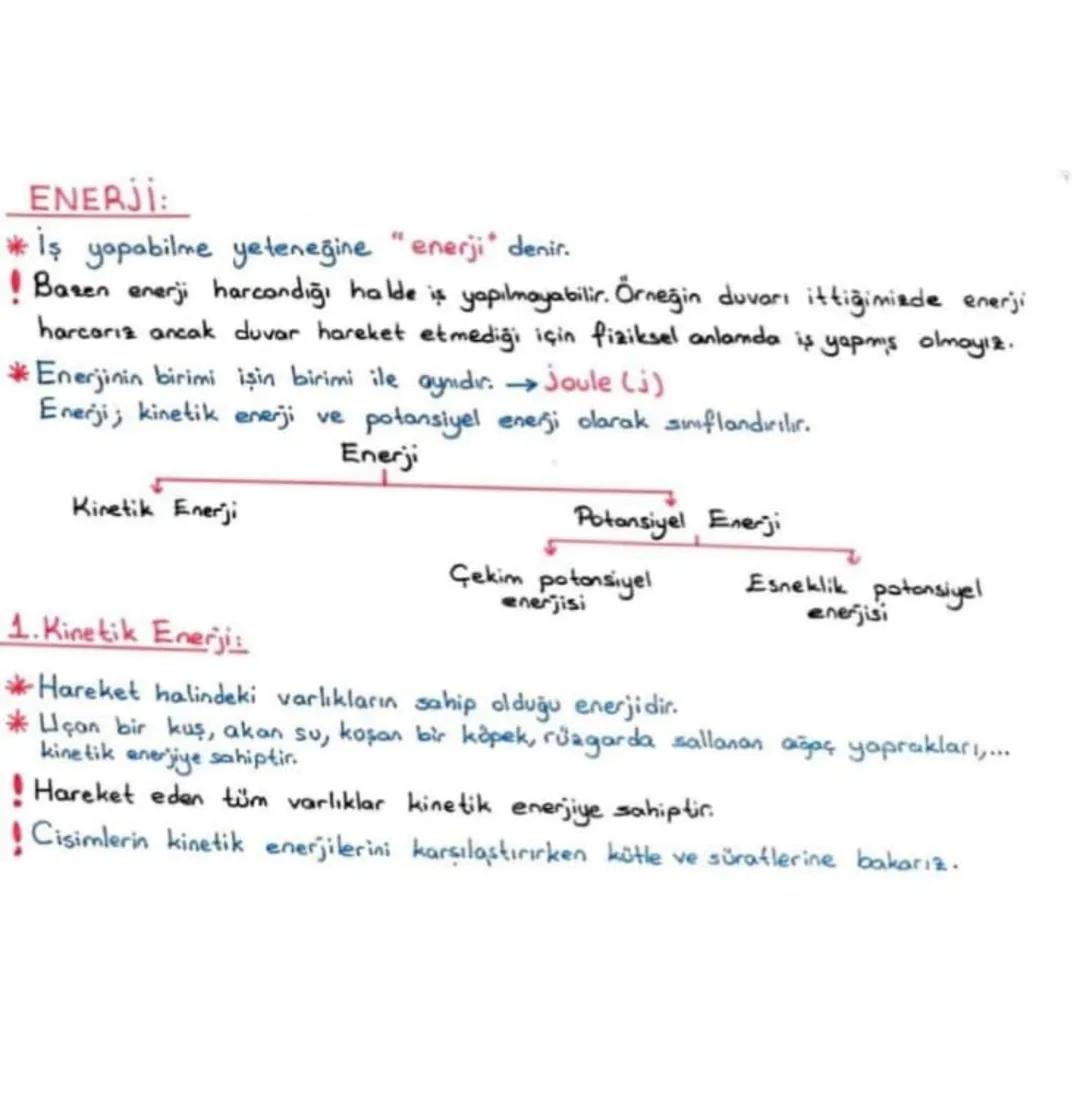 ENERJİ:
* İş yapabilme yeteneğine "enerji" denir.
! Bazen enerji harcandığı halde iş yapılmayabilir. Örneğin duvarı ittiğimizde enerji
harcarız ancak duvar hareket etmediği için fiziksel anlamda iş yapmış olmayız.
* Enerjinin birimi işin birimi ile aynıdır. → Joule (j)
Enerji; kinetik enerji ve potansiyel enerji olarak sınıflandırılır.
Enerji
Kinetik Enerji
Potansiyel Enerji
Çekim potansiyel
enerjisi
Esneklik potansiyel
enerjisi
1. Kinetik Enerji:
* Hareket halindeki varlıkların sahip olduğu enerjidir.
* Uçan bir kuş, akan su, koşan bir köpek, rüzgarda sallanan ağaç yaprakları,...
kinetik enerjiye sahiptir.
! Hareket eden tüm varlıklar kinetik enerjiye sahiptir.
! Cisimlerin kinetik enerjilerini karşılaştırırken kütle ve süratlerine bakarız.